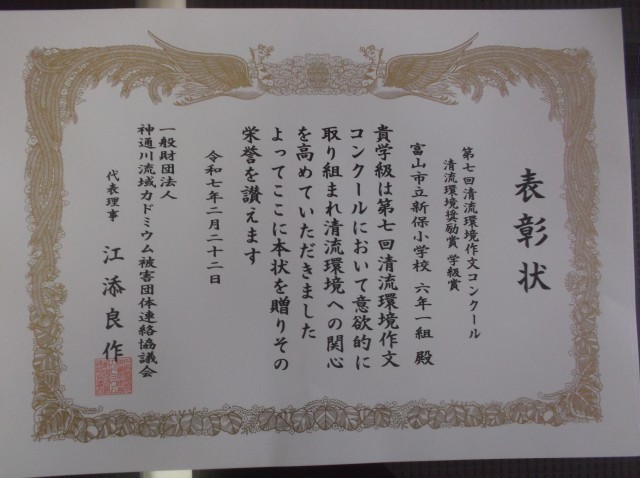 表彰状
第七回清流環境作文コンクール
清流環境奨励賞 学級賞
富山市立新保小学校 六年一組 殿
貴学級は第七回清流環境作文
コンクールにおいて意欲的に
取り組まれ清流環境への関心
を高めていただきました
よってここに本状を贈りその
栄誉を讃えます
令和七年二月二十二日
一般財団法人
神通川流域カドミウム被害団体連絡協議会
代表理事 江添良作